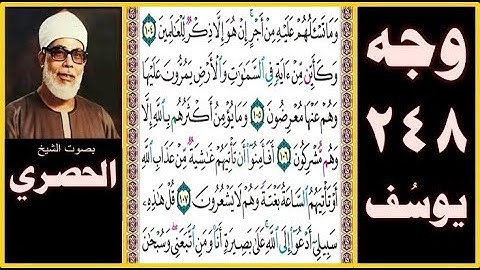 وجه
٢٤٨
يوسُف
وَمَا تَسْـَٔلُهُمْ عَلَيْهِ مِنْ أَجْرٍ إِنْ هُوَ إِلَّا ذِكْرٌ لِّلْعَـٰلَمِينَ ١٠٤
وَكَأَيِّن مِّنْ ءَايَةٍ فِى ٱلسَّمَـٰوَٰتِ وَٱلْأَرْضِ يَمُرُّونَ عَلَيْهَا
وَهُمْ عَنْهَا مُعْرِضُونَ ١٠٥ وَمَا يُؤْمِنُ أَكْثَرُهُم بِٱللَّهِ إِلَّا
وَهُم مُّشْرِكُونَ ١٠٦ أَفَأَمِنُوٓا۟ أَن تَأْتِيَهُمْ غَـٰشِيَةٌ مِّنْ عَذَابِ ٱللَّهِ
أَوْ تَأْتِيَهُمُ ٱلسَّاعَةُ بَغْتَةً وَهُمْ لَا يَشْعُرُونَ ١٠٧ قُلْ هَـٰذِهِۦ
سَبِيلِىٓ أَدْعُوٓا۟ إِلَى ٱللَّهِ عَلَىٰ بَصِيرَةٍ أَنَا۠ وَمَنِ ٱتَّبَعَنِى وَسُبْحَـٰنَ
بصوت الشيخ
الحصري